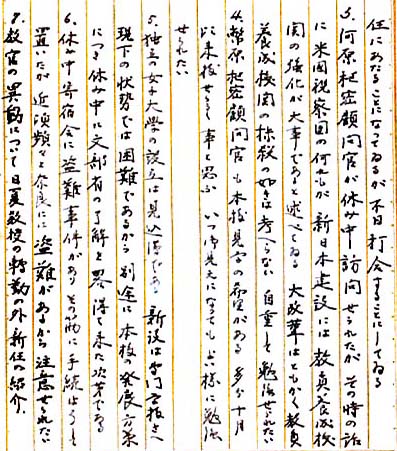 任にあたることになつてゐるが不日打合することにしてゐる
3、河原枢密顧問官が休み中訪問せられたが その時の話
に米国視察団の何れもが新日本建設には教員養成機
関の強化が大事であると述べてゐる 大改革はともかく教員
養成機関の抹殺の如きは考へられない 自重して勉強せられたい
4、幣原枢密顧問官も本校見学の希望がある 多分十月
に来校せられる事と思ふ いつ御見えになつてもよい様に勉強
せられたい
5、独立女子大学の設立は見込薄である 新設は専門学校さへ
現下の状勢では困難であるから 別途に本校の発展方策
につき休み中に文部省の了解を得て来た次第である
6、休み中寄宿舎に盗難事件があり その筋に手続はして
置いたが 近頃頻々と奈良に盗難があるから注意せられたい
7、教官の異動について 日夏教授の転勤の外新任の紹介、